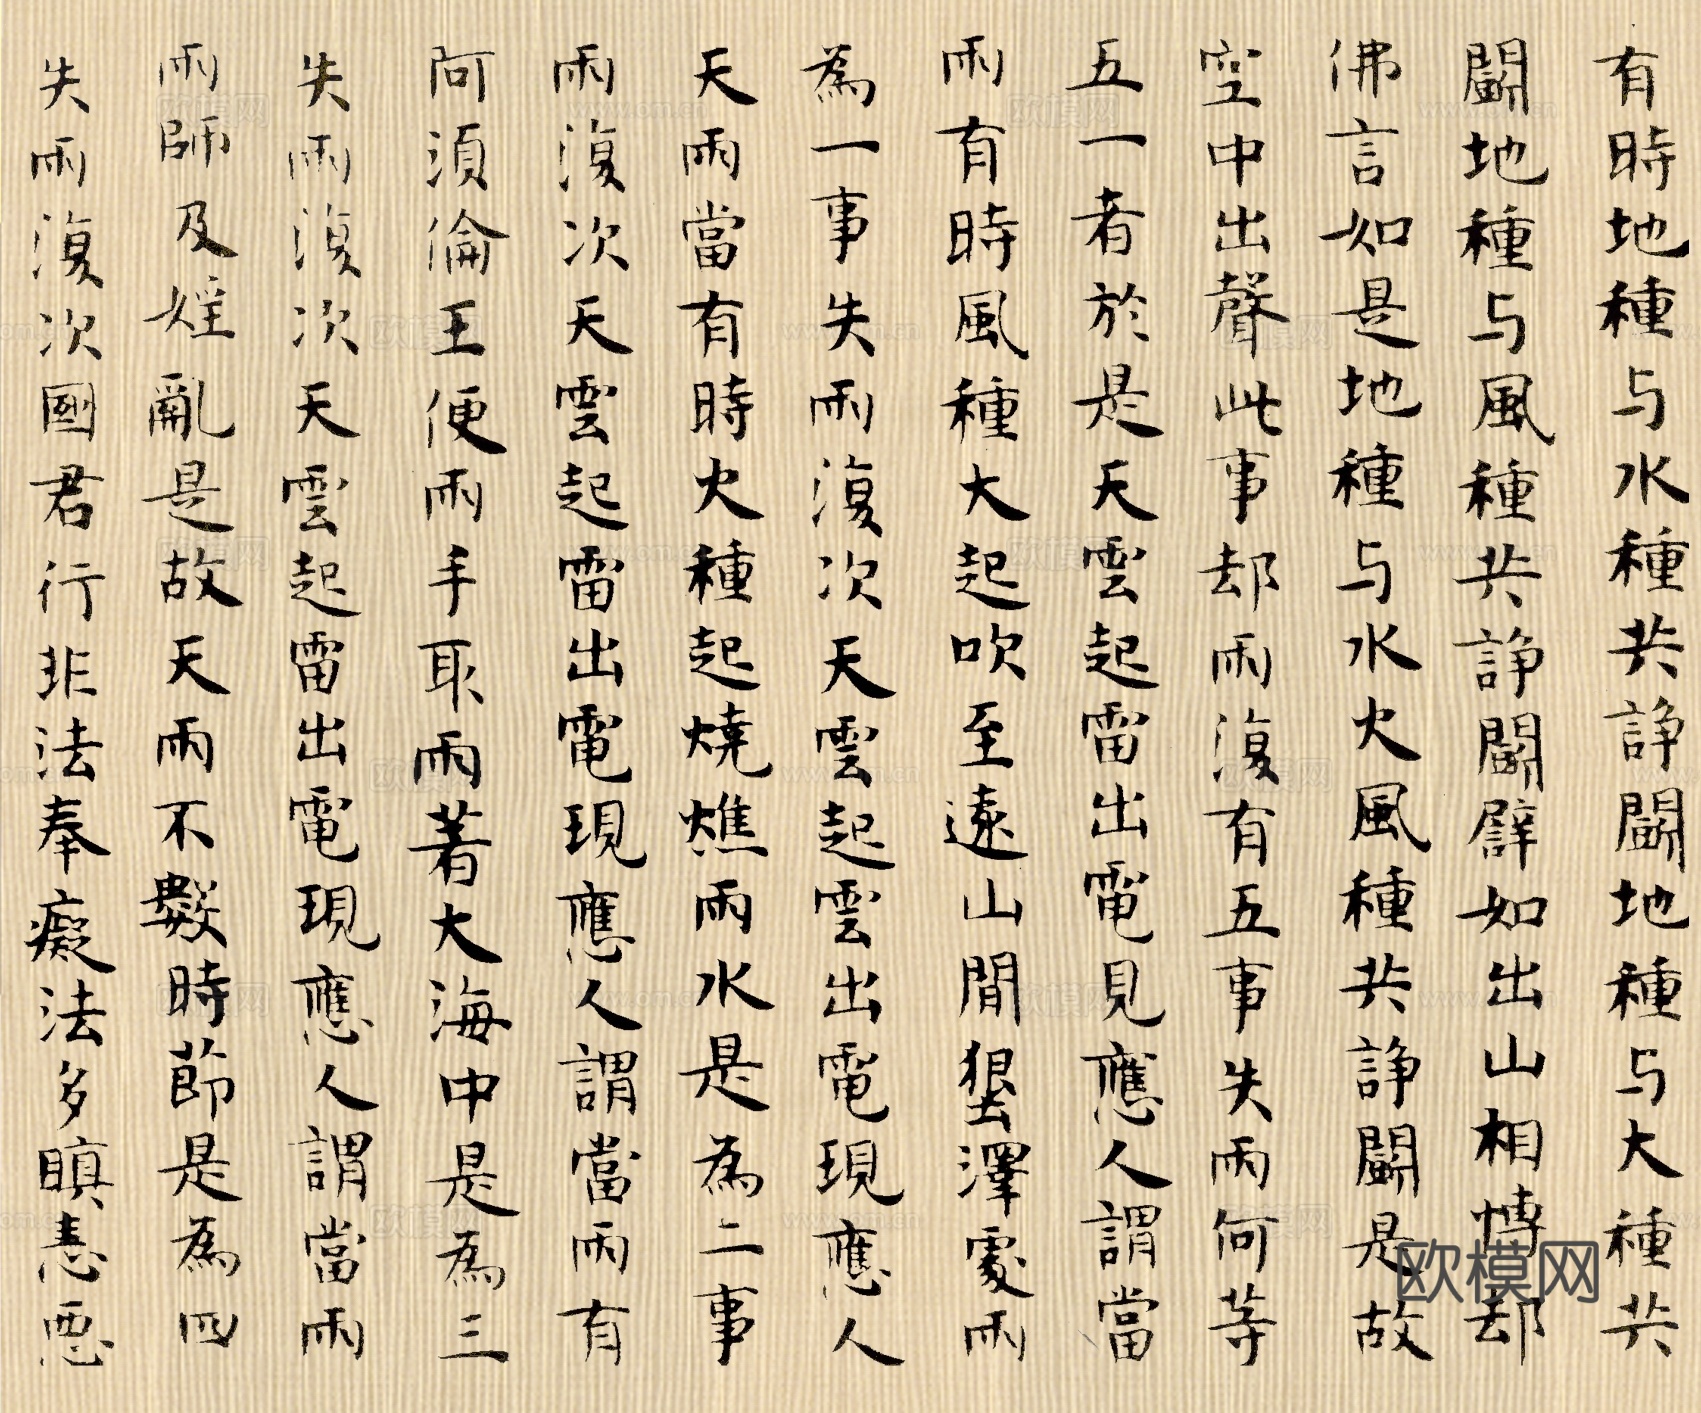 有時地種与水種共諍鬭地種与大種共
鬭地種与風種共諍鬭譬如出山相慱却
佛言如是地種与水火風種共諍鬭是故
空中出聲此事却雨復有五事失雨何等
五一者於是天雲起雷出電見應人謂當
雨有時風種大起吹至遠山間墾澤處雨
為一事失雨復次天雲起雲出電現應人
天雨當有時火種起燒燋雨水是為二事
雨復次天雲起雷出電現應人謂當雨有
阿須倫王便雨手取雨著大海中是為三
失雨復次天雲起雷出電現應人謂當雨
雨師及婬亂是故天雨不數時節是為四
失雨復次國君行非法奉癡法多瞋恚惡
欧模网